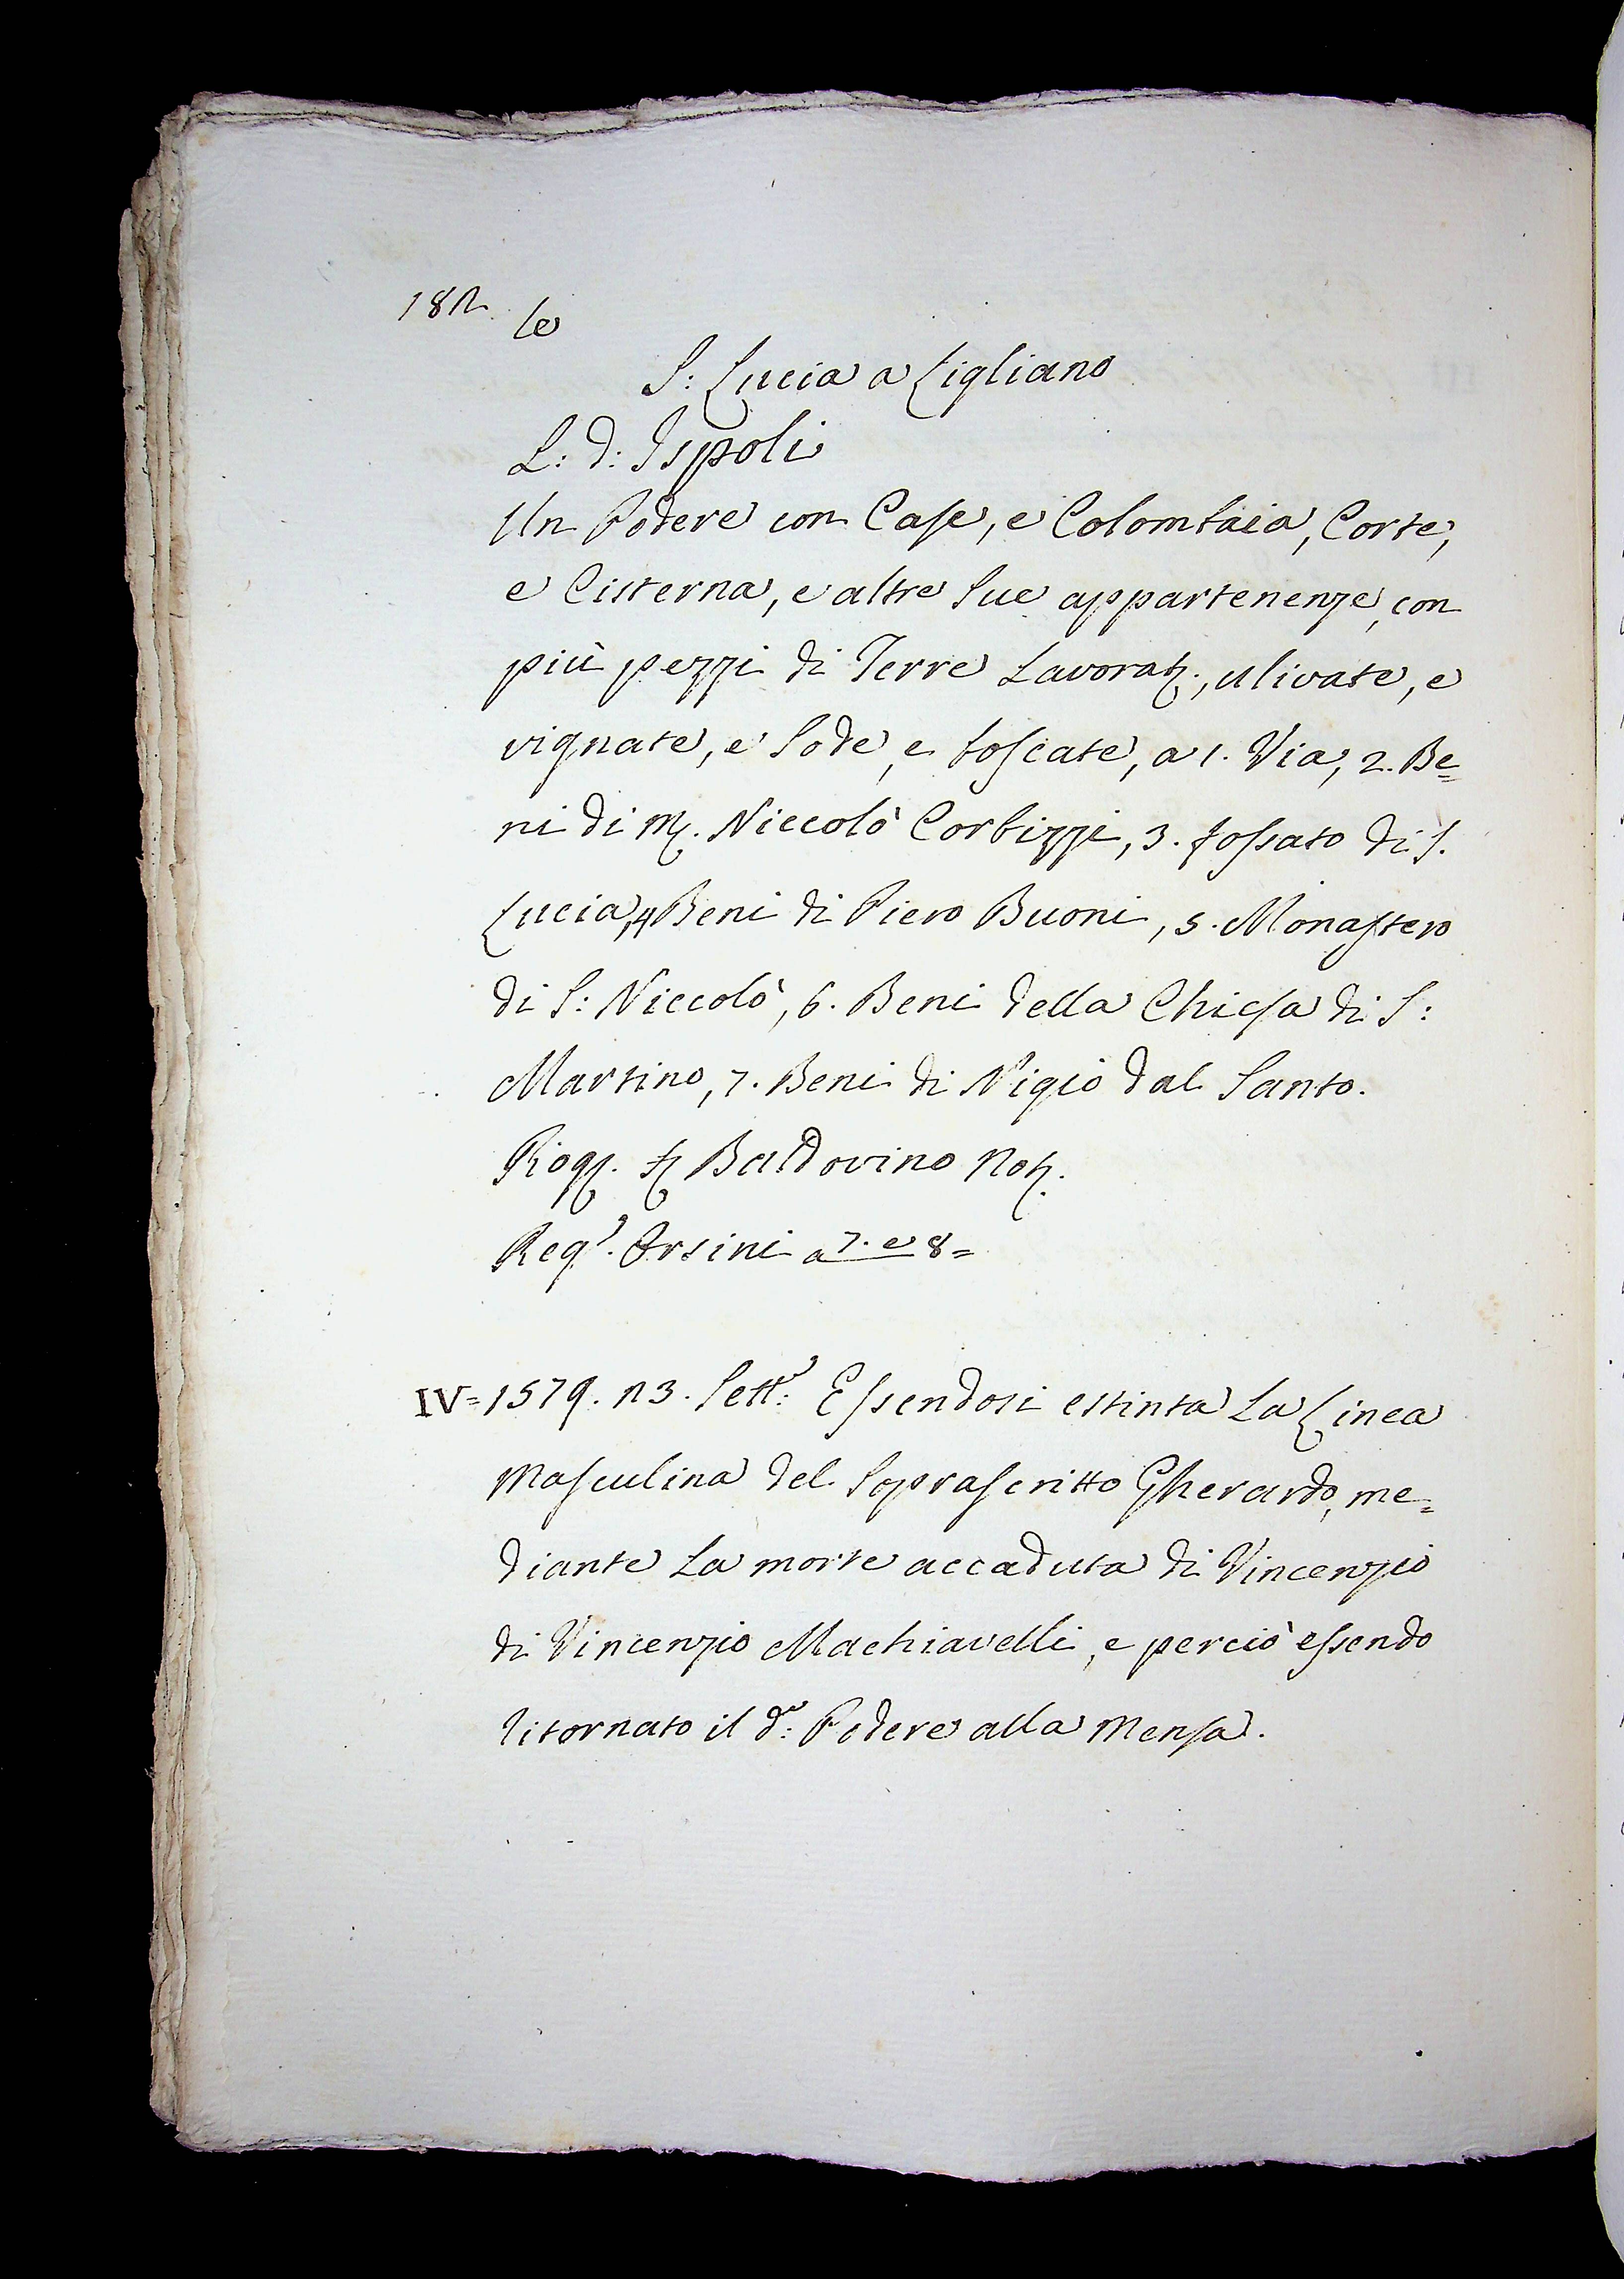 182
le
S: Lucia a Ligliano
L: d: Ispoli
Un Podere con Case, e Colombaia, Corte,
e Cisterna, e altre Sue appartenenze, con
più pezzi di Terre Lavorat:, ulivate, e
vignate, e Sode, e boscate, a 1. Via, 2. Be=
ni di M. Niccolò Corbizzi, 3. fossato di S.
Lucia, 4 Beni di Piero Buoni, 5. Monastero
di S: Niccolò, 6. Beni della Chiesa di S:
Martino, 7. Beni di Nigio dal Santo.
Rog. Baldovino Not.
Reg:o Orsini a 7. e 8=
IV= 1579. 23. Sett:e Essendosi estinta La Linea
Masculina del Soprascritto Gherardo, me=
diante La morte accaduta di Vincenzio
di Vincenzio Machiavelli, e perciò essendo
ritornato il d:o Podere alla Mensa.